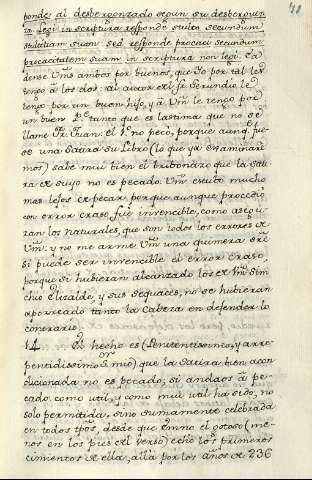 78
ponde: al desbergonzado segun su desberguen
za legi in scriptura responde stulto secundum
stultitiam suam sed responde procaci secundum
procacitatem suam in scriptura non legi
dense Vms ambos por buenos, que Yo por tal les
tengo à los dos: al autor Fr. Gerundio le
tengo por un buen hijo, y à Vm le tengo por
un buen P.e tanto que es lastima que no se
llame Fr. Juan. el 1.º no pecò, porque aunq. fue-
se una Satira su Libro (lo que ya examinare
mos) sabe mui bien el tritonario que la Sati
ra de suyo no es pecado. Vm estubo mucho
mas lejos de pecar porque aunque procediò
con error craso, fue invencible, como asegu
ran los naturales, que son todos los errores de
Vm. y no me arme Vm una quimera sre
si puede ser invencible el error craso,
porque si hubieran alcanzado los de Vm
chio Elizalde, y sus sequaces, no se hubieran
aporreado tanto la Cabeza en defender lo
conerario.
14 El hecho es (Penitentissimo, y arre
pentidissimo S.or mio) que la Satira bien acon
dicionada no es pecado; si andaos à pe
cado. como util, y como mui util ha sido, no
solo permitida, sino sumamente celebrada
en todos tpos, desde que Ennio el gotoso (me
nos en los pies de el verso) echò los primeros
cimientos de ella, allà por los años de 236